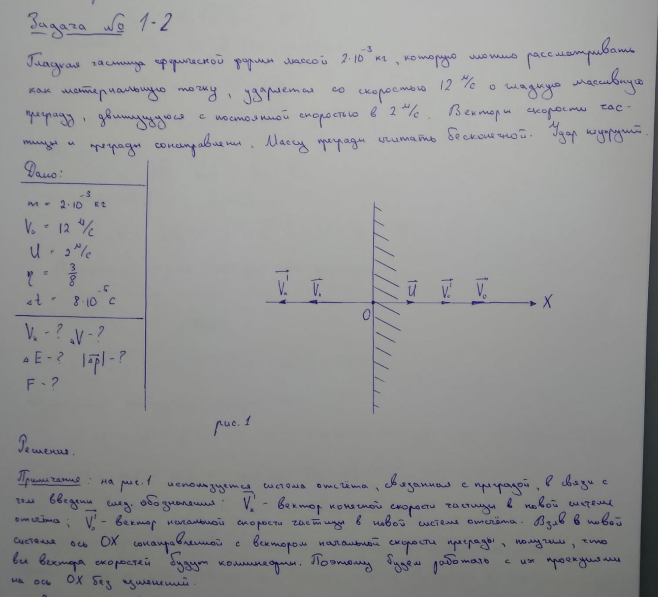 Задача № 1-2
Гладкая частица сферической формы массой 2·10⁻³ кг, которую можно рассматривать
как материальную точку, ударяется со скоростью 12 м/с о гладкую массивную
преграду, движущуюся с постоянной скоростью в 2 м/с. Векторы скорости час-
тицы и преграды сонаправлены. Массу преграды считать бесконечной. Удар неупругий.
Дано:
m = 2·10⁻³ кг
V₀ = 12 м/с
U = 2 м/с
η = 3/8
Δt = 8·10⁻⁵ с
Vₐ - ? ΔV - ?
ΔE - ? |Δp| - ?
F - ?
Vₐ' Vₐ U V₀' V₀ X
O
рис. 1
Решение.
Примечание: на рис. 1 используется система отсчёта, связанная с преградой, в связи с
чем введены след. обозначения: Vₐ' - вектор конечной скорости частицы в новой системе
отсчёта; V₀' - вектор начальной скорости частицы в новой системе отсчёта. Взяв в новой
системе ось OX сонаправленной с вектором начальной скорости преграды, получим, что
все вектора скоростей будут коллинеарны. Поэтому будем работать с их проекциями
на ось OX без изменений.